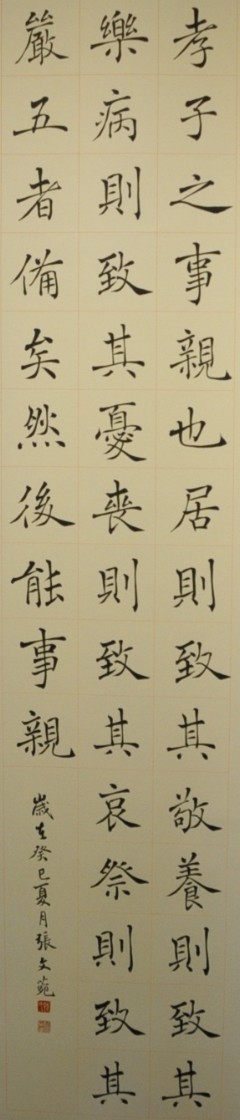 孝子之事親也居則致其敬養則致其
樂病則致其憂喪則致其哀祭則致其
嚴五者備矣然後能事親
歲在癸巳夏月張文苑